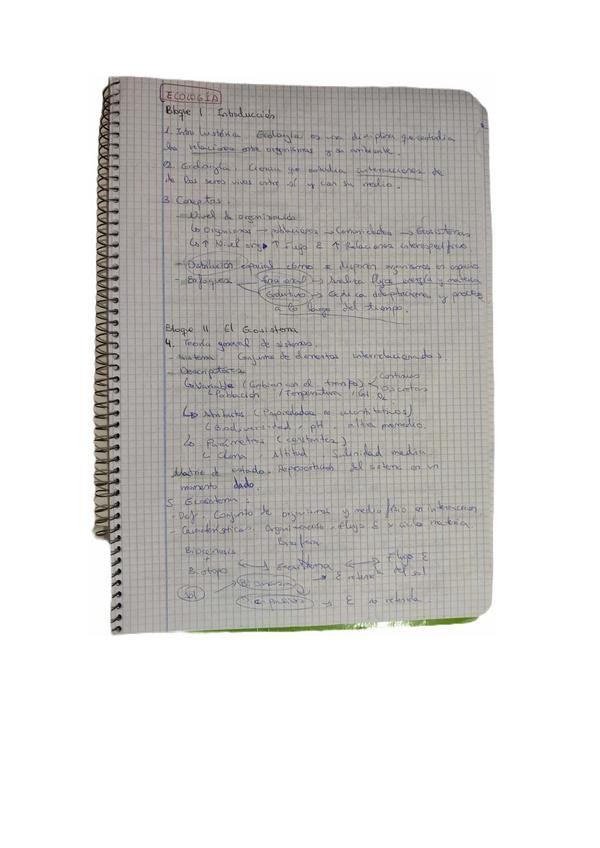 ECOLOGÍA
Bloque I Introducción
1. Intr histórica. Ecología es una disciplina que estudia
las relaciones entre organismos y su ambiente.
2. Ecología. Ciencia que estudia interacciones de
de los seres vivos entre sí y con su medio.
3. Conceptos.
- Nivel de organización
↳ Organismos → poblaciones → Comunidades → Ecosistemas
↳ ↑ Nivel org ↑ Flujo E ↑ Relaciones interespecíficas
- Distribución espacial como se disponen organismos en espacio
- Enfoques Funcional → Analiza flujo energía y materia
Evolutivo → Explica adaptaciones y procesos
a lo largo del tiempo.
Bloque II El Ecosistema
4. Teoría general de sistemas.
- Sistema. Conjunto de elementos interrelacionados.
- Descriptores
↳ Variable (Cambian con el tiempo) Continuas
Discretas
↳ Población, Temperatura,
↳ Atributos (Propiedades no cuantitativas)
↳ Biodiversidad, pH, altura promedio.
↳ Parámetros (constantes)
↳ Clima, Altitud, Salinidad media.
Matriz de estado. Representación del sistema en un
momento dado.
5. Ecosistema.
- Def. Conjunto de organismos y medio físico en interacción
- Características. Organización, flujo E y ciclo materia
Biosfera
Biocenosis
+ Ecosistema Flujo E
Biotopo del sol
Sol → E no retenida